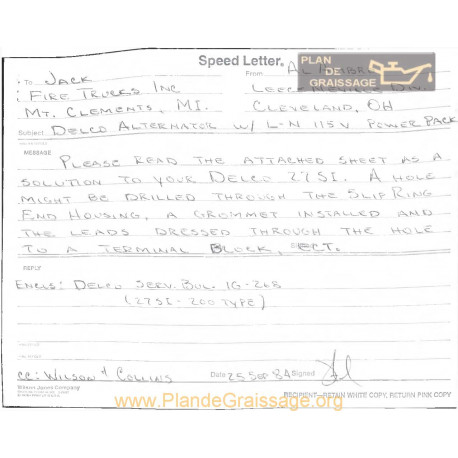 Speed Letter®
PLAN
DE
GRAISSAGE
To JACK From AL
FIRE TRUCKS INC
MT. CLEMENTS, MI. CLEVELAND, OH
Subject DELCO ALTERNATOR W/ L-N 115V POWER PACK
MESSAGE
PLEASE READ THE ATTACHED SHEET AS A
SOLUTION TO YOUR DELCO 27SI. A HOLE
MIGHT BE DRILLED THROUGH THE SLIP RING
END HOUSING, A GROMMET INSTALLED AND
THE LEADS DRESSED THROUGH THE HOLE
TO A TERMINAL BLOCK, ECT.
REPLY
ENCLS: DELCO SERV. BUL. 1G-268
(27SI-200 TYPE)
CC: WILSON & COLLINS Date 25 SEP 84 Signed
Wilson Jones Company
www.PlandeGraissage.org
RECIPIENT—RETAIN WHITE COPY, RETURN PINK COPY